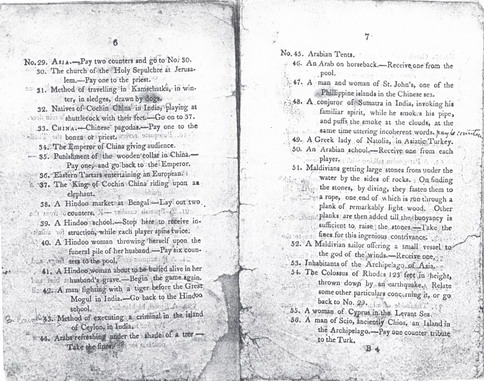 6
No. 29. ASIA.—Pay two counters and go to No. 30.
30. The church of the Holy Sepulchre at Jerusa-
lem.—Pay one to the priest.
31. Method of travelling in Kamschatka, in win-
ter, in sledges, drawn by dogs.
32. Natives of Cochin China in India, playing at
shuttlecock with their feet.—Go on to 37.
33. CHINA.—Chinese pagodas.—Pay one to the
bonza or priest.
34. The Emperor of China giving audience.
35. Punishment of the wooden collar in China.—
Pay one, and go back to the Emperor.
36. Eastern Tartars entertaining an European.
37. The Kings of Cochin China riding upon an
elephant.
38. A Hindoo market at Bengal.—Lay out two
counters.
39. A Hindoo school.—Stop here to receive in-
struction, while each player spins twice.
40. A Hindoo woman throwing herself upon the
funeral pile of her husband.—Pay six coun-
ters to
41. A Hindoo woman about to be buried alive in her
husband's grave.—Begin the game again.
42. A man fighting with a tiger before the Great
Mogul in India.—Go back to the Hindoo
school.
43. Method of executing a criminal in the island
of Ceylon, in India.
44. Arabs refreshing under the shade of a tree—
Take the fines.
7
No. 45. Arabian Tents.
46. An Arab on horseback.—Receive one from the
pool.
47. A man and woman of St. John's, one of the
Phillippine islands in the Chinese sea.
48. A conjuror of Sumatra in India, invoking his
familiar spirit, while he smokes his pipe,
and puffs the smoke at the clouds, at the
same time uttering incoherent words.
49. A Greek lady of Natolia, in Asiatic Turkey.
50. An Arabian school.—Receive one from each
player.
51. Maldivians getting large stones from under the
water by the sides of rocks. On finding
the stones, by diving, they fasten them to
a rope, one end of which is run through a
plank of remarkably light wood. Other
planks are then added till the buoyancy is
sufficient to raise the stones.—Take the
fines for this ingenious contrivance.
52. A Maldivian tailor offering a small vessel to
the god of the winds.—Receive one.
53. Inhabitants of the Archipelago of Asia.
54. The Colossus of Rhodes 125 feet in height,
thrown down by an earthquake. Relate
some other particulars concerning it, or go
back to No. 29.
55. A woman of Cyprus in the Levant Sea.
56. A man of Scio, anciently Chios, an Island in
the Archipelago.—Pay one counter tribute
to the Turk.
B 4